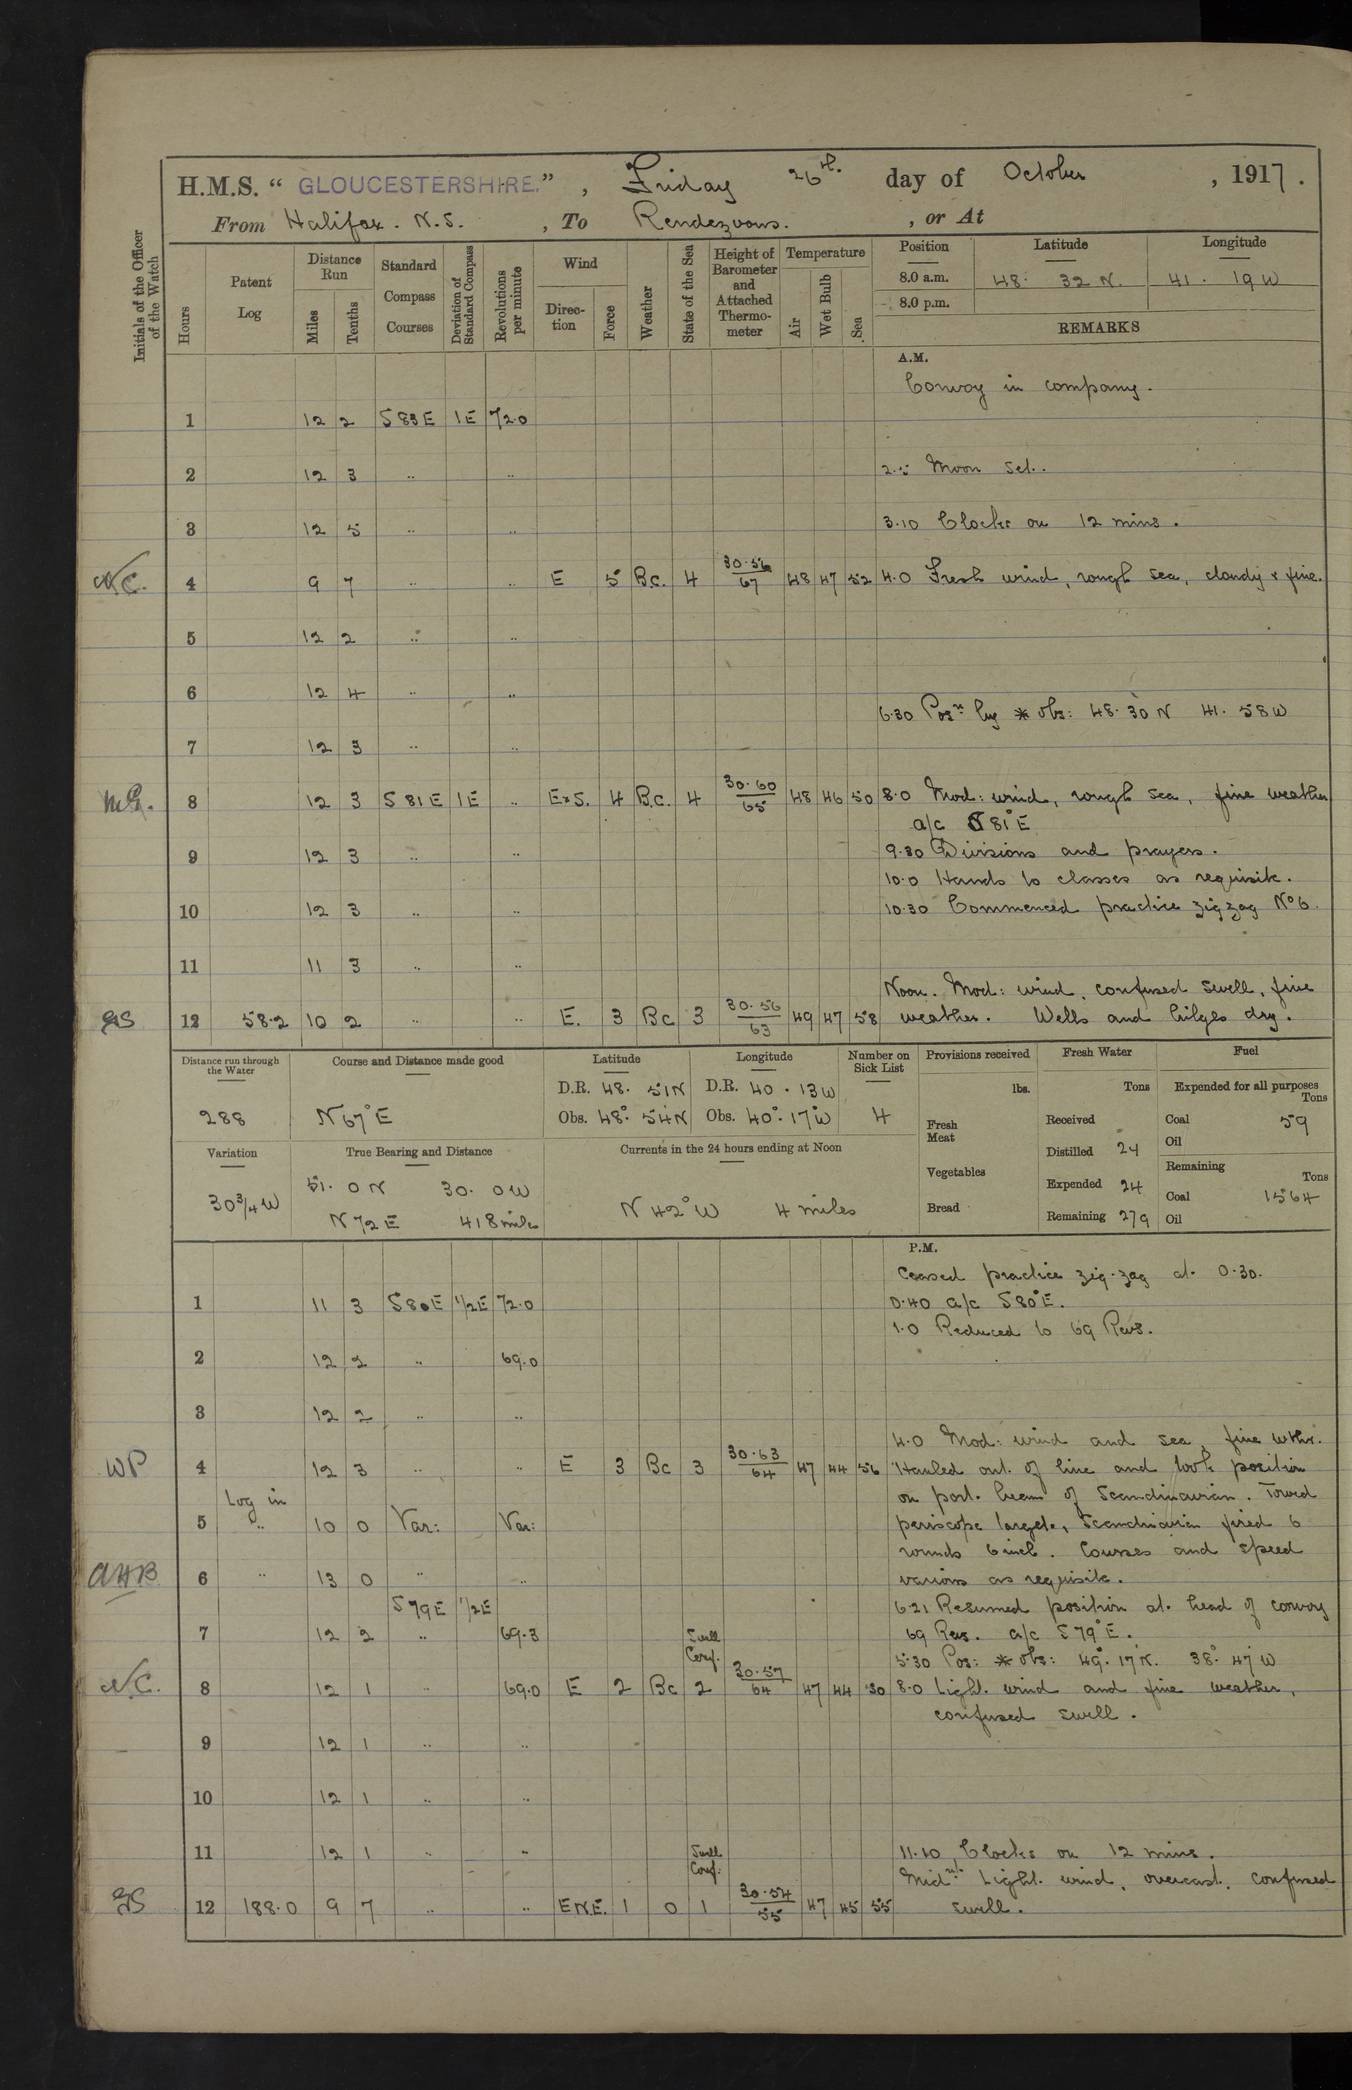 H.M.S. “ GLOUCESTERSHIRE.” , Friday 26th. day of October , 1917.
From Halifax. N.S. , To Rendezvous. , or At
Initials of the Officer of the Watch
Hours Patent Log Distance Run Miles Tenths Standard Compass Courses Deviation of Standard Compass Revolutions per minute Wind Direction Force Weather State of the Sea Height of Barometer and Attached Thermometer Temperature Air Wet Bulb Sea Position Latitude Longitude
8.0 a.m. 48. 32 N. 41. 19 W
8.0 p.m.
REMARKS
A.M.
Convoy in company.
1 12 2 S 83 E 1 E 72.0
2 12 3 .. .. 2.5 Moon Set.
3 12 5 .. .. 3.10 Clocks on 12 mins.
NC. 4 9 7 .. .. E 5 B.c. 4 30.56 67 48 47 52 4.0 Fresh wind, rough sea, cloudy & fine.
5 12 2 .. ..
6 12 4 .. ..
6.30 Posn by * obs: 48. 30 N 41. 58 W
7 12 3 .. ..
8 12 3 S 81 E 1 E .. ExS. 4 B.c. 4 30.60 65 48 46 50 8.0 Mod: wind, rough sea, fine weather
a/c S 81° E
9 12 3 .. .. 9.30 Divisions and prayers.
10.0 Hands to classes as requisite.
10 12 3 .. .. 10.30 Commenced practice zig zag No 6.
11 11 3 .. ..
Noon. Mod: wind, confused swell, fine
12 58.2 10 2 .. .. E. 3 Bc 3 30.56 63 49 47 58 weather. Wells and bilges dry.
Distance run through the Water Course and Distance made good Latitude Longitude Number on Sick List Provisions received Fresh Water Fuel
288 N 67° E D.R. 48. 51 N D.R. 40. 13 W lbs. Tons Expended for all purposes Tons
Obs. 48°. 54 N Obs. 40°. 17 W 4 Fresh Meat Received Coal 59
Oil
Variation True Bearing and Distance Currents in the 24 hours ending at Noon Vegetables Distilled 24 Remaining Tons
30 3/4 W 51. 0 N 30. 0 W Expended 24 Coal 1564
N 72 E 418 miles N 42° W 4 miles Bread Remaining 279 Oil
P.M.
Ceased practice zig-zag at 0.30.
1 11 3 S 80 E 1/2 E 72.0 0.40 a/c S 80° E.
1.0 Reduced to 69 Revs.
2 12 2 .. 69.0
3 12 2 .. ..
4.0 Mod: wind and sea, fine wthr.
WP 4 12 3 .. .. E 3 Bc 3 30.63 64 47 44 56 Hauled out of line and took position
Log in on port beam of Scandinavian. Towed
5 .. 10 0 Var: Var: periscope target, Scandinavian fired 6
rounds 6 inch. Courses and speed
AHB 6 .. 13 0 .. .. various as requisite.
S 79 E 1/2 E 6.21 Resumed position at head of convoy
7 12 2 .. 69.3 Swell Conf. 69 Revs. a/c S 79° E.
5.30 Pos: * obs: 49°. 17 N. 38°. 47 W
N.C. 8 12 1 .. 69.0 E 2 Bc 2 30.57 64 47 44 30 8.0 Light wind and fine weather,
confused swell.
9 12 1 .. ..
10 12 1 .. ..
11 12 1 .. .. Swell Conf. 11.10 Clocks on 12 mins.
Midnt. Light wind, overcast, confused
12 188.0 9 7 .. .. E N.E. 1 0 1 30.54 55 47 45 55 swell.